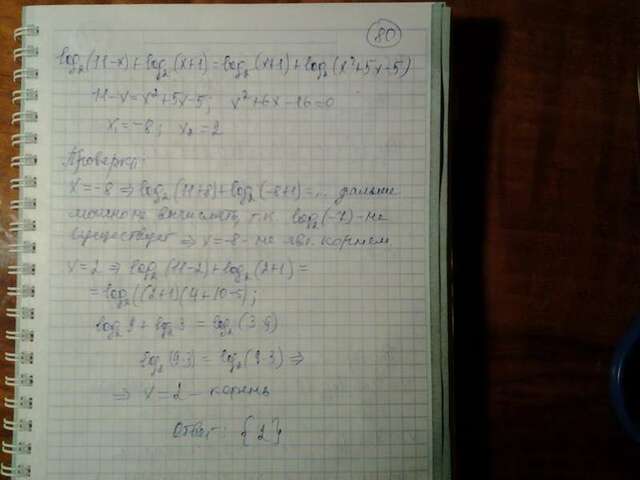 80
log₂(11-x)+log₂(x+1)=log₂(x+1)+log₂(x²+5x-5)
11-x=x²+5x-5; x²+6x-16=0
x₁=-8; x₂=2
Проверка:
x=-8 ⇒ log₂(11+8)+log₂(-8+1)=... дальше
можно не вычислять, т.к. log₂(-7) - не
существует ⇒ x=-8 - не явл. корнем
x=2 ⇒ log₂(11-2)+log₂(2+1)=
=log₂((2+1)(4+10-5);
log₂9+log₂3=log₂(3·9)
log₂(9·3)=log₂(9·3) ⇒
⇒ x=2 - корень
Ответ: {2}